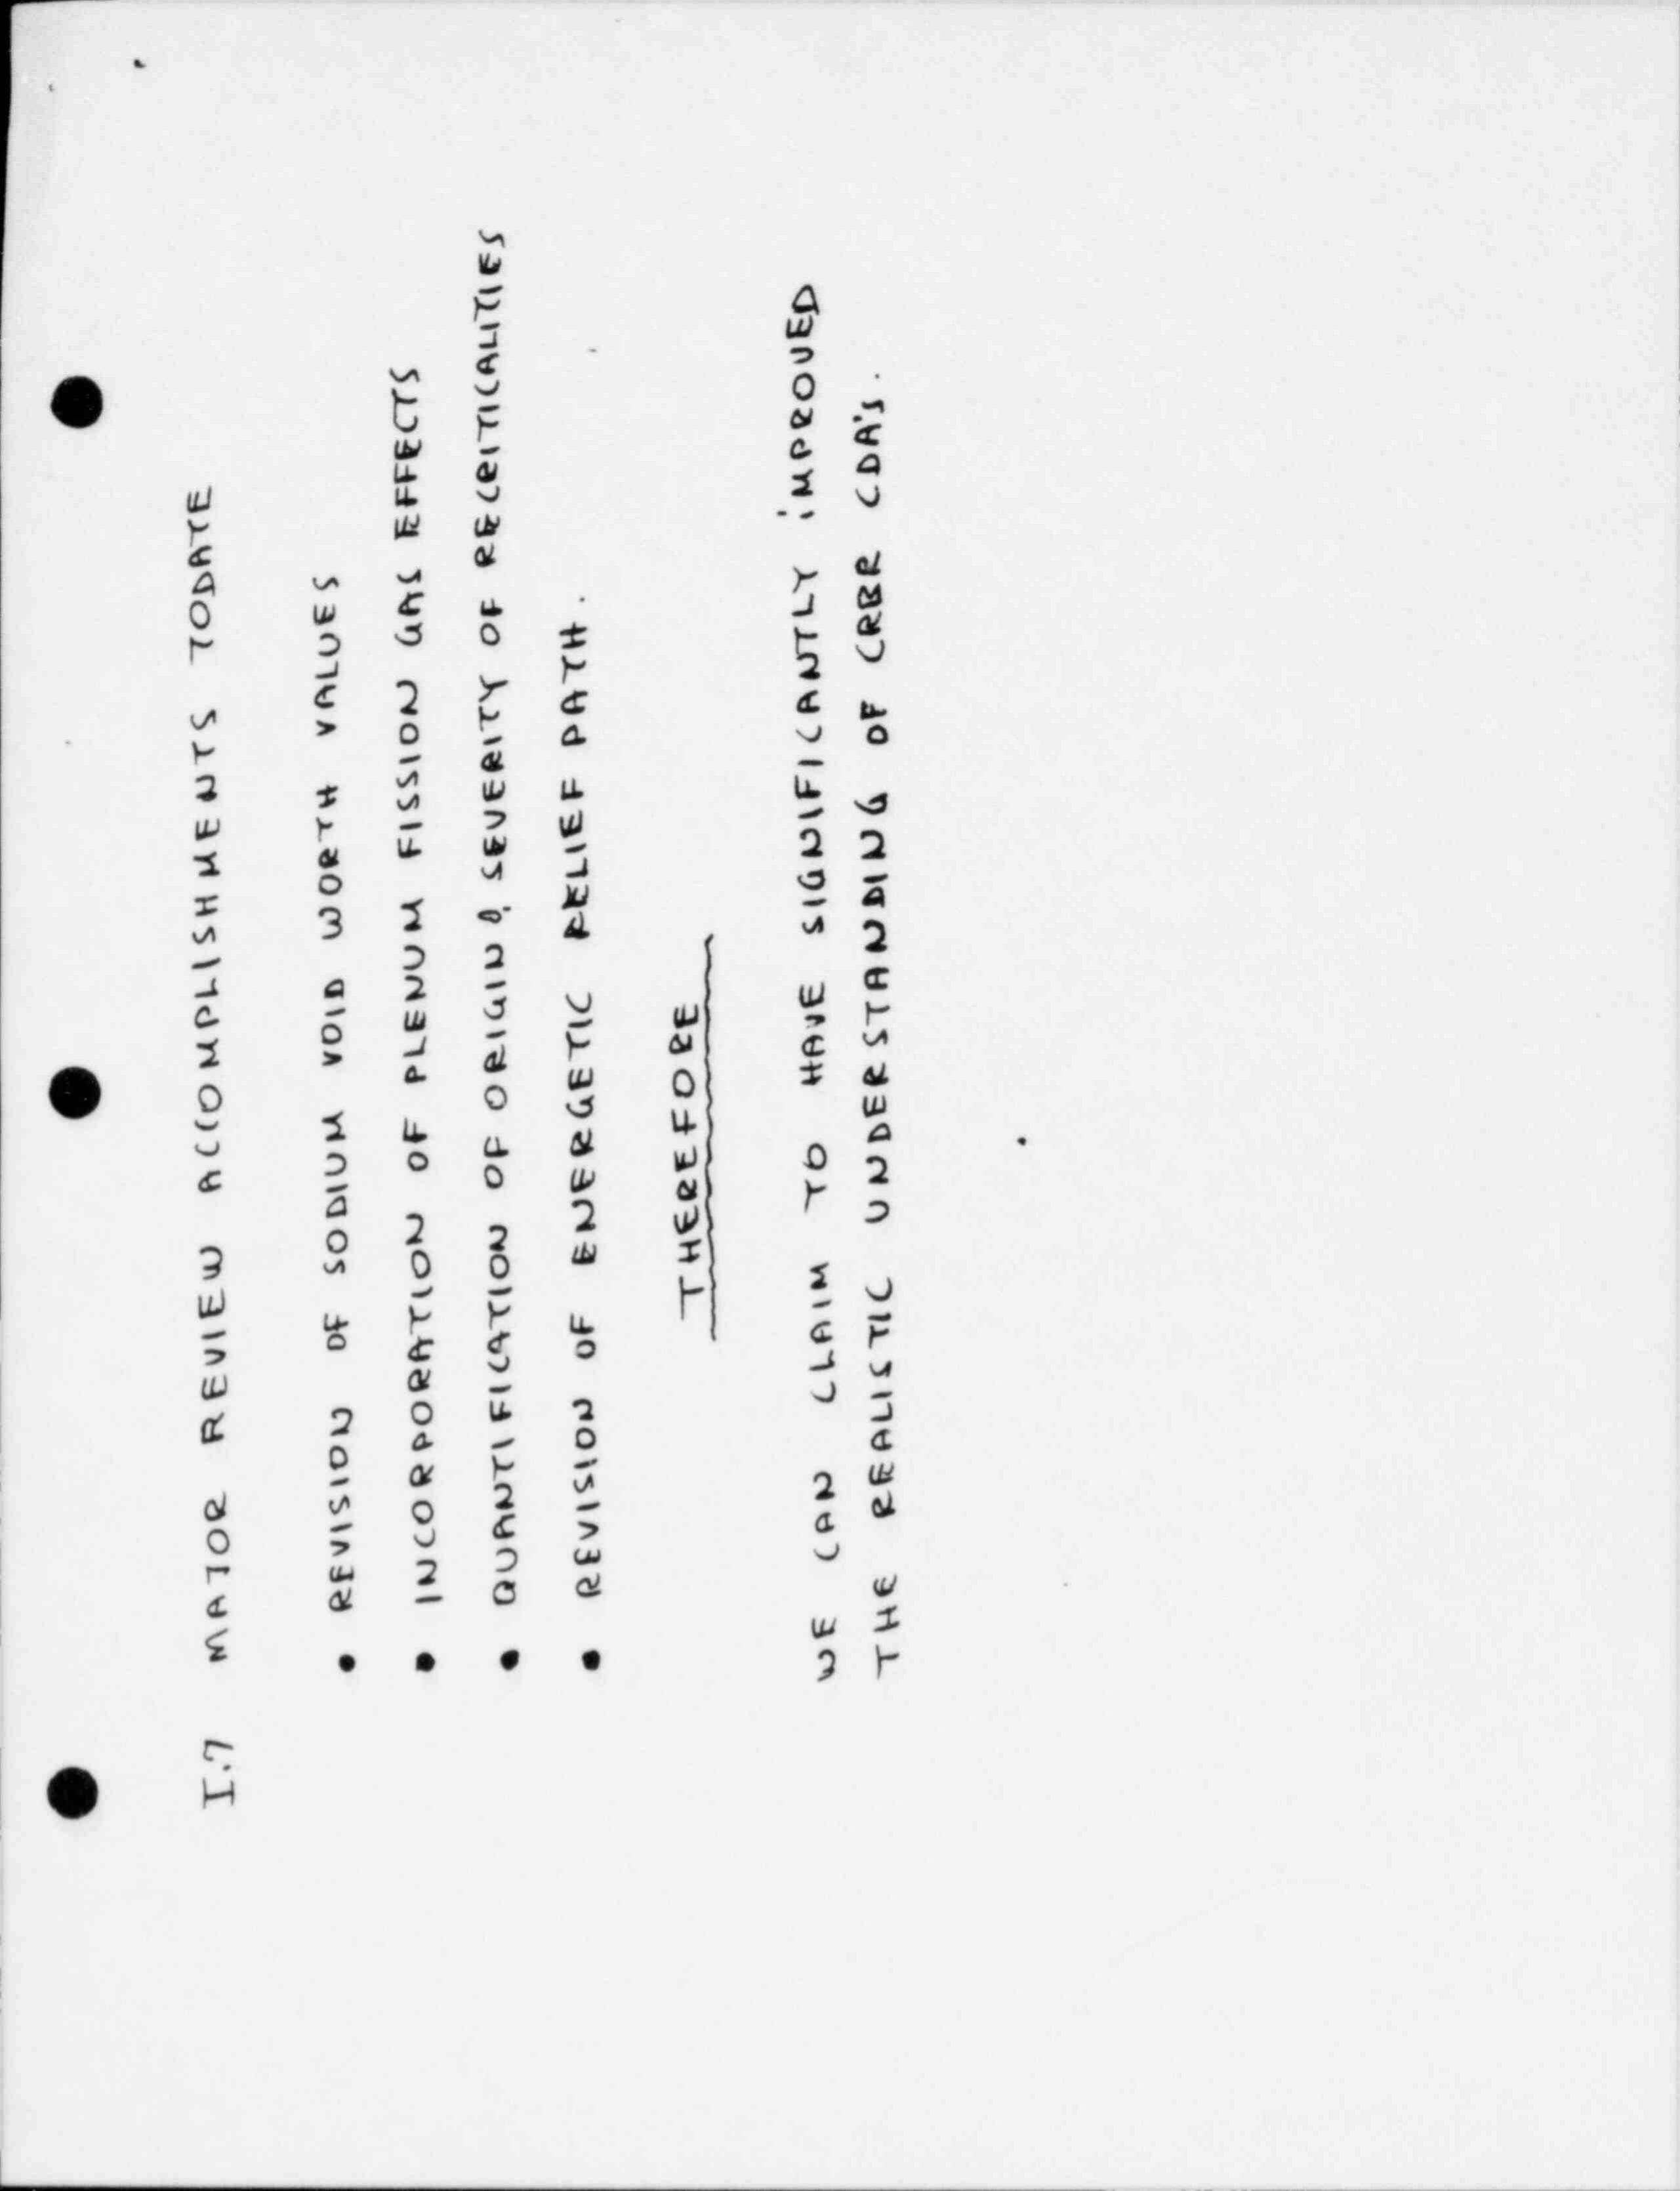 I.7 MAJOR REVIEW ACCOMPLISHMENTS TODATE
• REVISION OF SODIUM VOID WORTH VALUES
• INCORPORATION OF PLENUM FISSION GAS EFFECTS
• QUANTIFICATION OF ORIGIN & SEVERITY OF RECRITICALITIES
• REVISION OF ENERGETIC RELIEF PATH.
THEREFORE
WE CAN CLAIM TO HAVE SIGNIFICANTLY IMPROVED
THE REALISTIC UNDERSTANDING OF CRBR CDA'S.